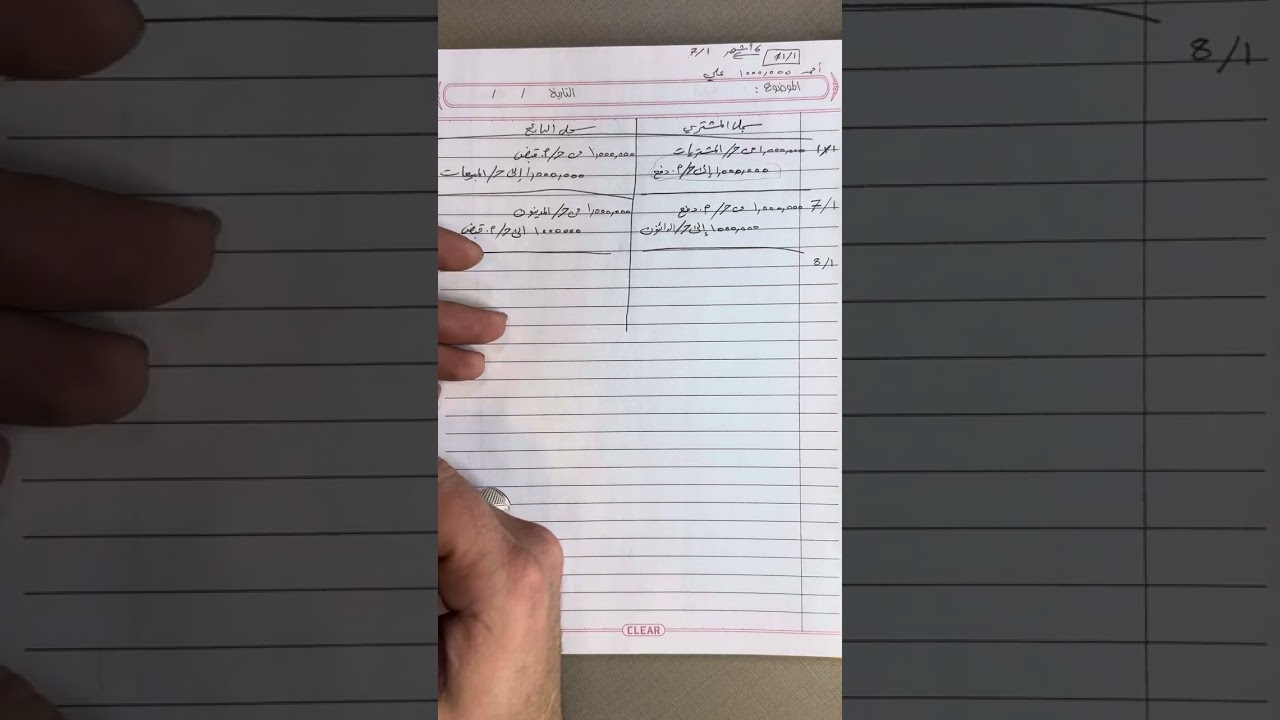 6 أشهر 1/1 7/1
أحمد 1000,000 علي
الموضوع : التاريخ / /
سجل المشتري سجل البائع
1/1 1,000,000 من ح/ المشتريات 1,000,000 من ح/ أ. قبض
1,000,000 إلى ح/ أ. دفع 1,000,000 إلى ح/ المبيعات
7/1 1,000,000 من ح/ أ. دفع 1,000,000 من ح/ المدينون
1,000,000 إلى ح/ الدائنون 1000000 الى ح/ أ. قبض
8/1
8/1
CLEAR